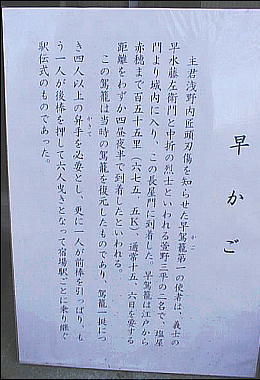 早かご
主君浅野内匠頭刃傷を知らせた早駕籠第一の使者は、義士の
早水藤左衛門と中折の烈士といわれる萱野三平の二名で、塩屋
門より城内に入り、この長屋門に到着した。早駕籠は江戸から
赤穂まで百五十五里(六七五、五K)、通常十五、六日を要する
距離をわずか四昼夜半で到着したといわれる。
この駕籠は当時の駕籠を復元したものであり、駕籠一挺につ
き四人以上の舁手を必要とし、更に一人が前棒を引っぱり、も
う一人が後棒を押して六人曳きとなって宿場駅ごとに乗り継ぐ
駅伝式のものであった。